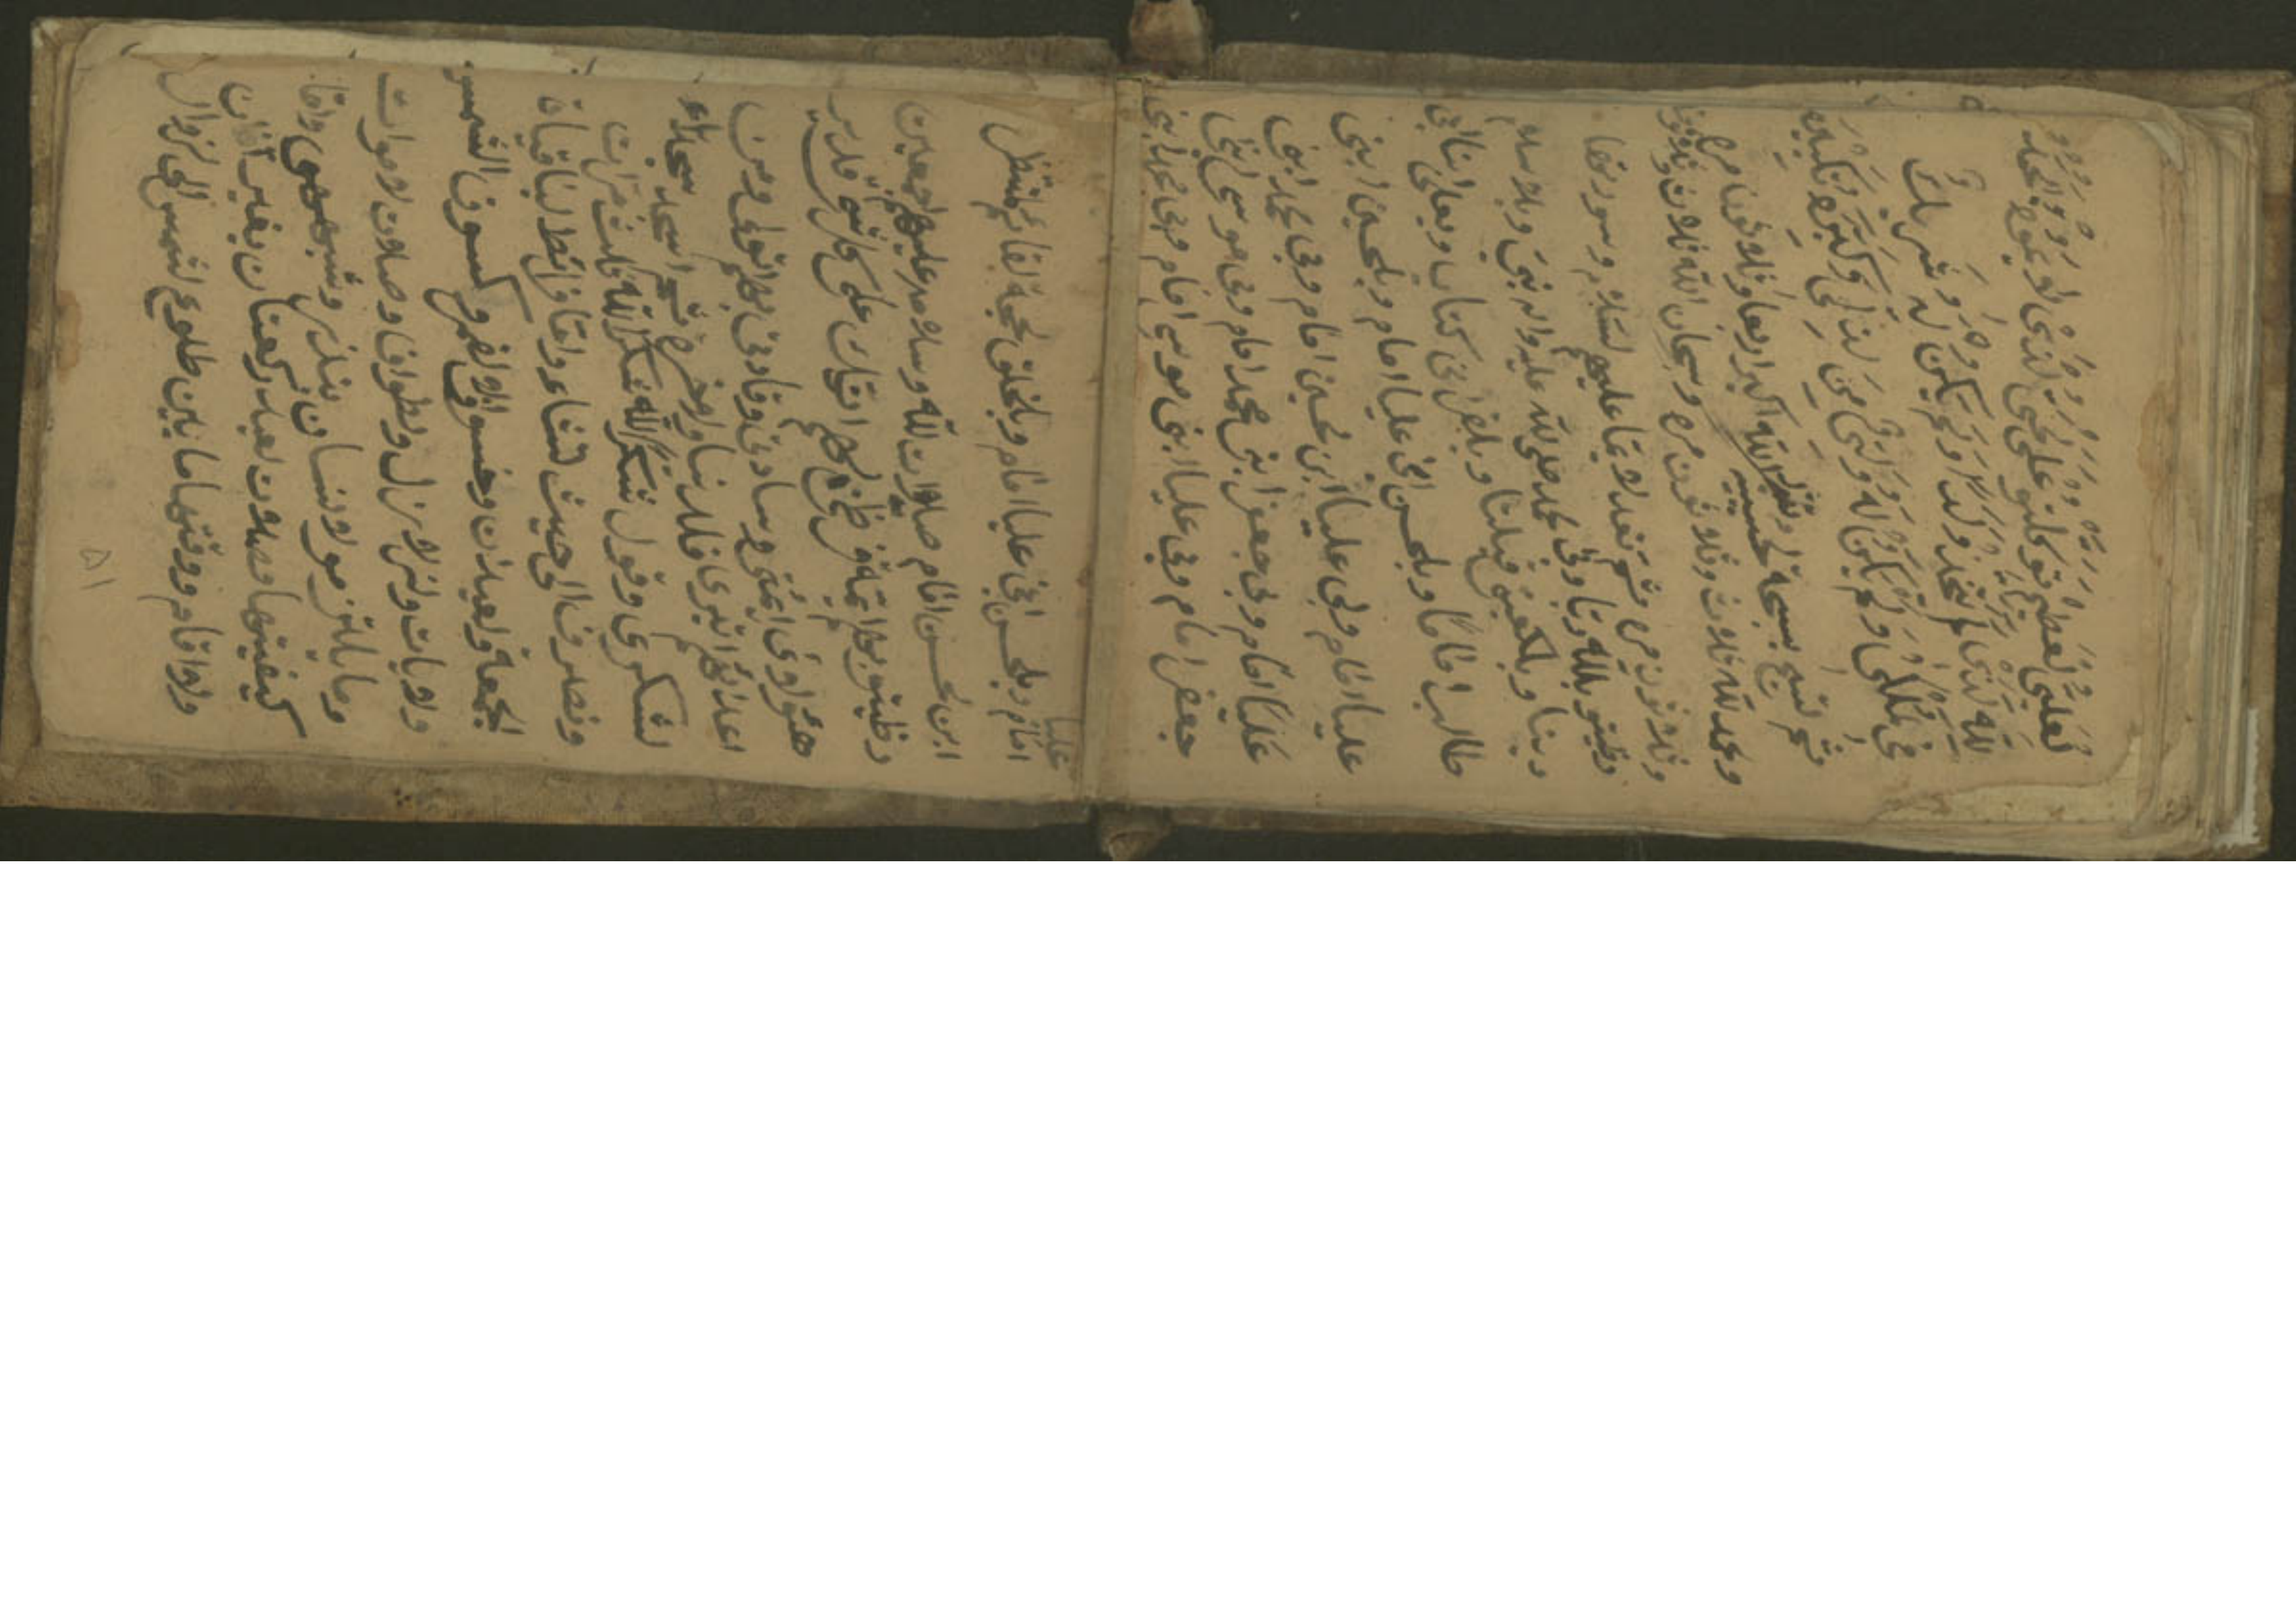 تعلىّ العظيم توكلتو على الحى الذى لا يموع والحمد
لله الذى لم يتخذ ولدا ولم يكون له شريك
فى الملك ولم يكون له ولى من الذل وكبره تكبيره
ثم اسبح تسبحة الله اكبر اربعا وثلاثون مره
وحمد لله ثلاث وثلاثون مره وسبحان الله ثلاث وثلاثون
وثلاثون مره عليهم السلام
رضيتو بلله ربا وبى محمد صلى لله عليه واله نبى وبلاسلام
دينا وبلكعبتى قبلتا وبلقرانى كتاب وبعلى ابنابى
طالب اماما وبلحسن ابنى عليا امام وبلحسين ابنى
عليا امام وبى عليا ابن حسين امام وبى محمد ابنى
عليا امام وبى جعفر ابنى محمد امام وبى موسى ابنى
جعفر امام وبى عليا ابنى موسى امام وبى محمد ابنى
عليا
امام وبلحسن ابنى عليا امام وبلخلق لحجة لقائم المنتظر
ابن الحسن امام صلوات لله وسلامه عليهم اجمعين
رضيتو بهم ائمة انك على كل شىء قدير
هئولاى ائمتى وسادتى وقادتى بهم اتولى ومن
اعدائهم اتبرى فلدنيا ولاخره ثم اسجد سجدة
لشكرى وقول شكر لله شكر لله ثلث مرات
ونصرف الى حيث تشاء وامّا
الجمعة ولعيدين وخسوف القمر وكسوف الشمس
ولايات ولزلازل ولطواف وصلات لاموات
وما يلتزمو لانسان بنذر وشبهه وامّا
كيفيتها وصلات لعيد ركعتان بغير اذان
ولا اقام ووقتها ما بين طلوع الشمس الى زوال
٥١